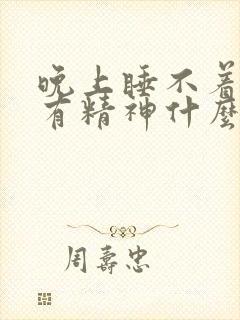 晚上睡不着
有精神什麼
周壽忠